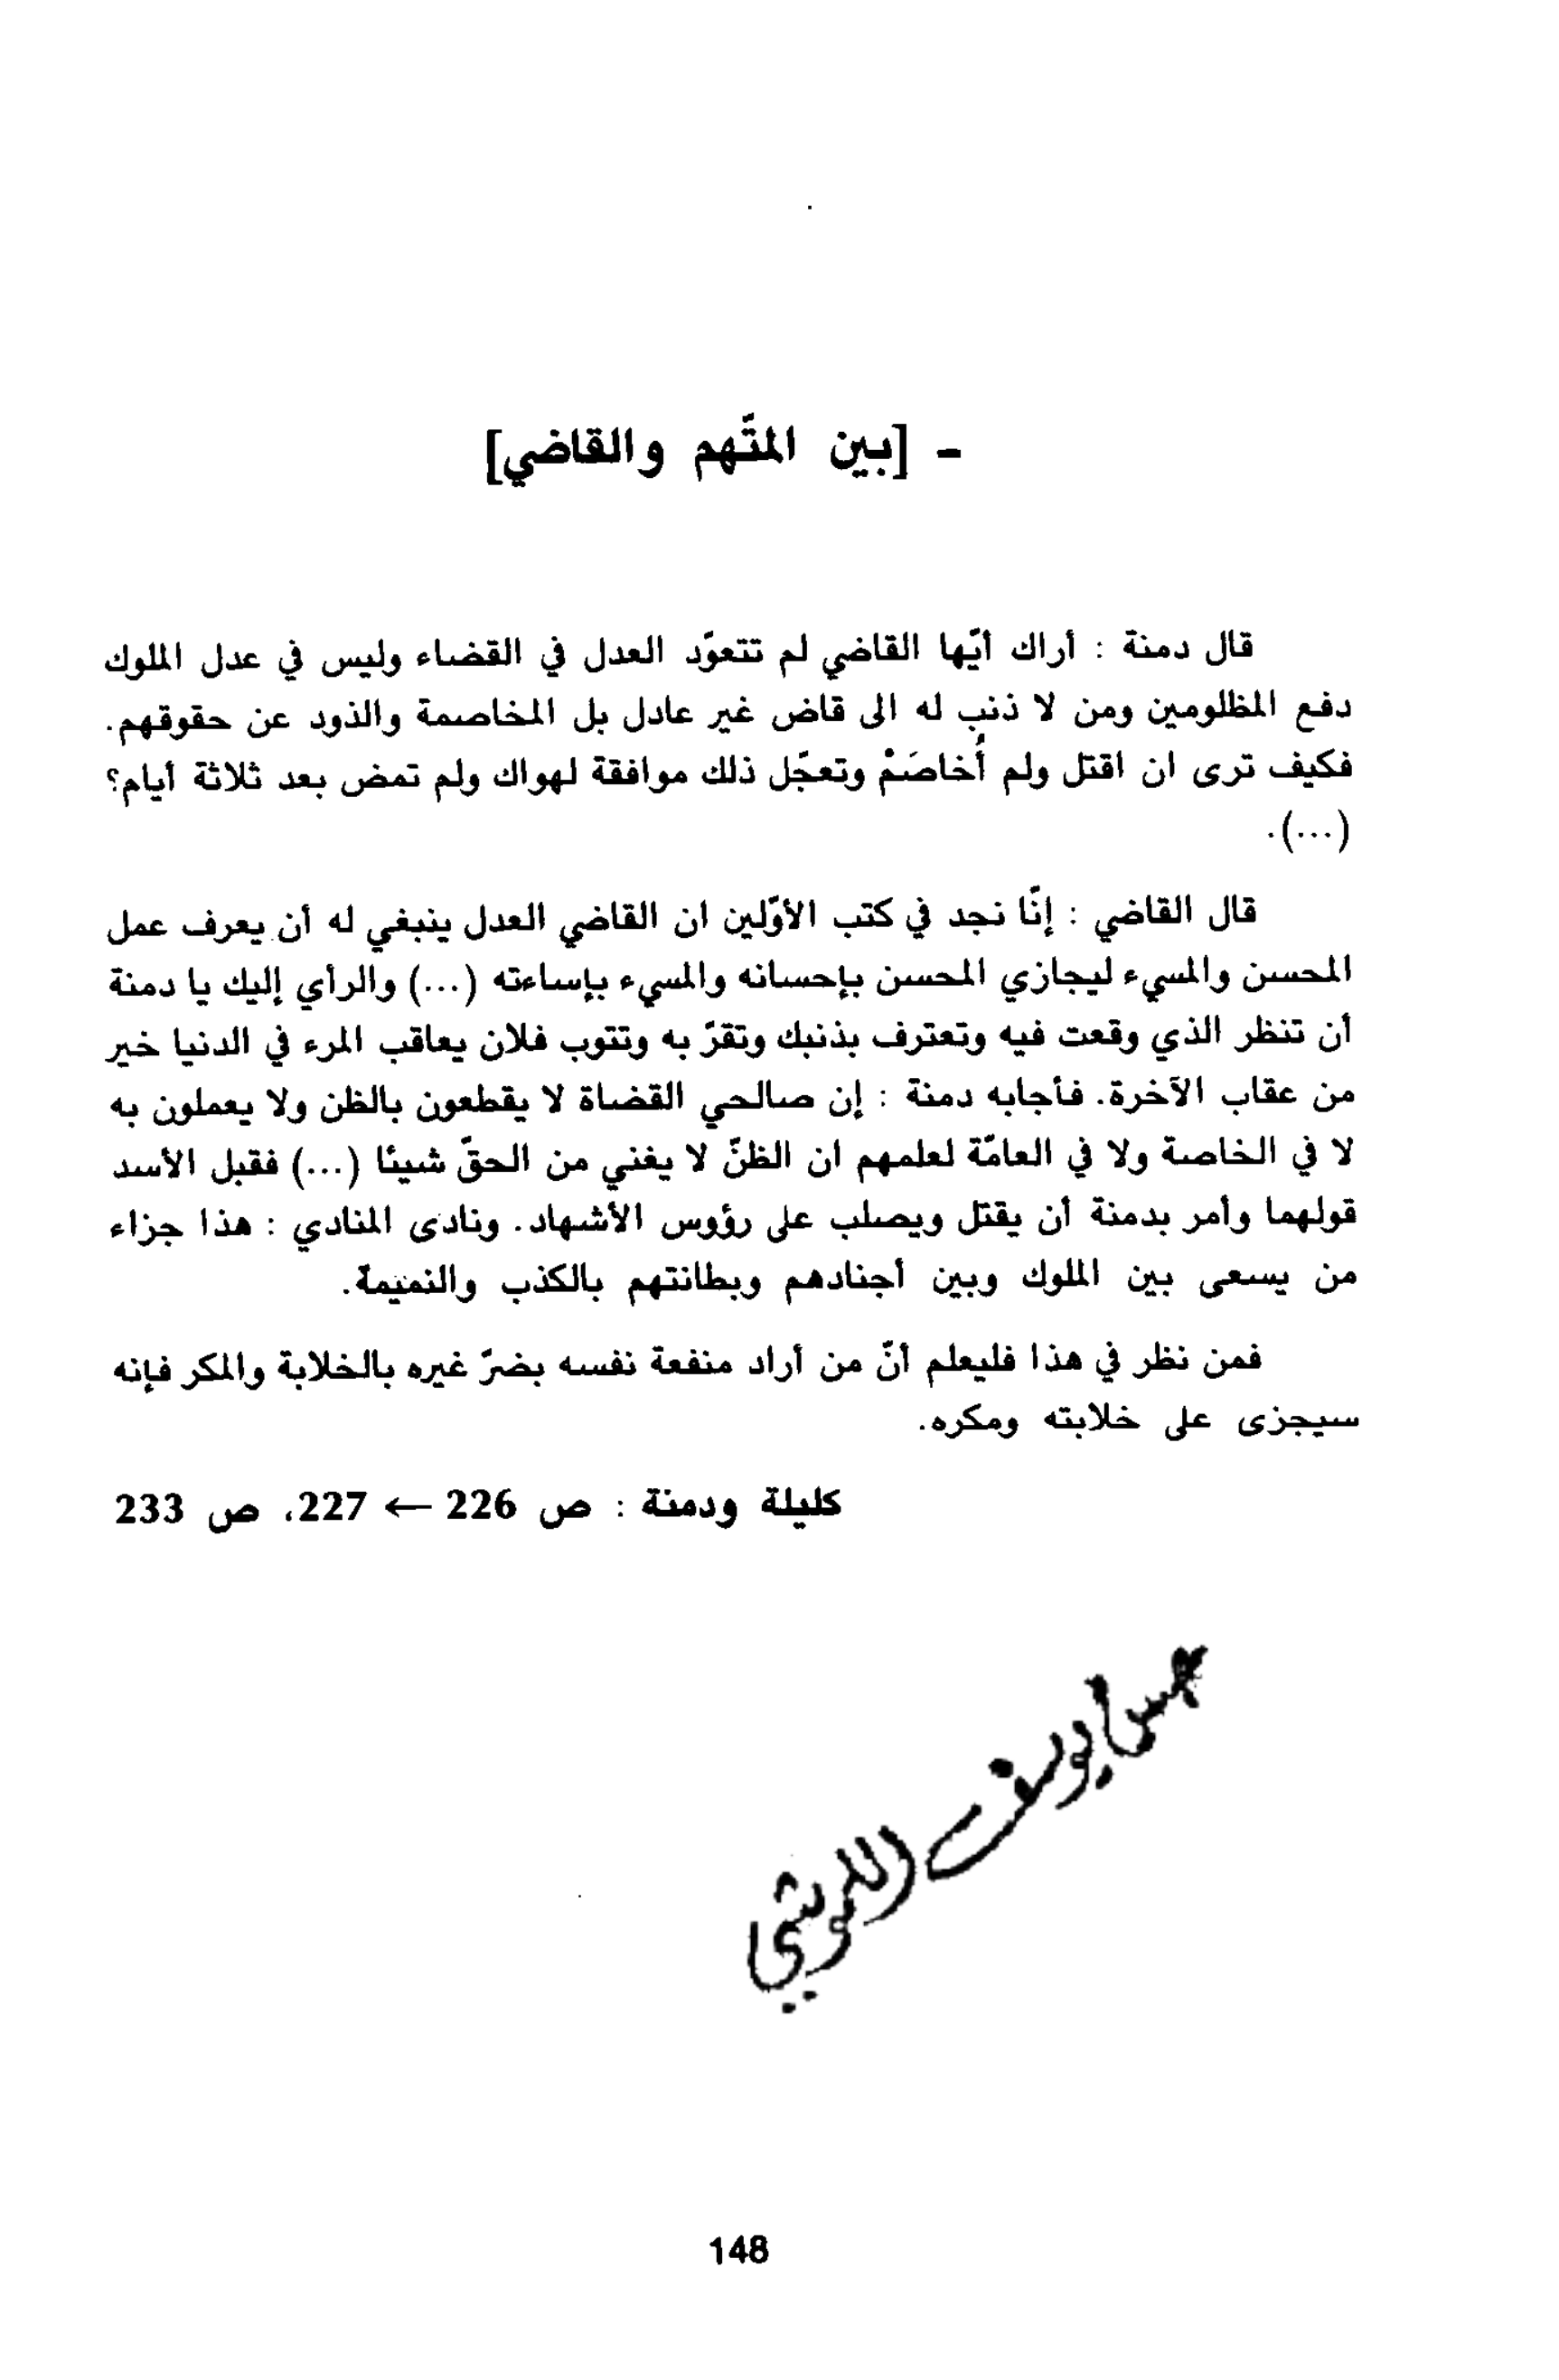 - [بين المتّهم والقاضي]
قال دمنة : أراك أيّها القاضي لم تتعوّد العدل في القضاء وليس في عدل الملوك
دفع المظلومين ومن لا ذنب له الى قاض غير عادل بل المخاصمة والذود عن حقوقهم.
فكيف ترى ان اقتل ولم أُخاصَمْ وتعجّل ذلك موافقة لهواك ولم تمض بعد ثلاثة أيام؟
(...).
قال القاضي : إنّا نجد في كتب الأوّلين ان القاضي العدل ينبغي له أن يعرف عمل
المحسن والمسيء ليجازي المحسن بإحسانه والمسيء بإساءته (...) والرأي إليك يا دمنة
أن تنظر الذي وقعت فيه وتعترف بذنبك وتقرّ به وتتوب فلان يعاقب المرء في الدنيا خير
من عقاب الآخرة. فأجابه دمنة : إن صالحي القضاة لا يقطعون بالظن ولا يعملون به
لا في الخاصة ولا في العامّة لعلمهم ان الظنّ لا يغني من الحقّ شيئا (...) فقبل الأسد
قولهما وأمر بدمنة أن يقتل ويصلب على رؤوس الأشهاد. ونادى المنادي : هذا جزاء
من يسعى بين الملوك وبين أجنادهم وبطانتهم بالكذب والنميمة.
فمن نظر في هذا فليعلم أنّ من أراد منفعة نفسه بضرّ غيره بالخلابة والمكر فإنه
سيجزى على خلابته ومكره.
كليلة ودمنة : ص 226 ← 227، ص 233
يوسف
148